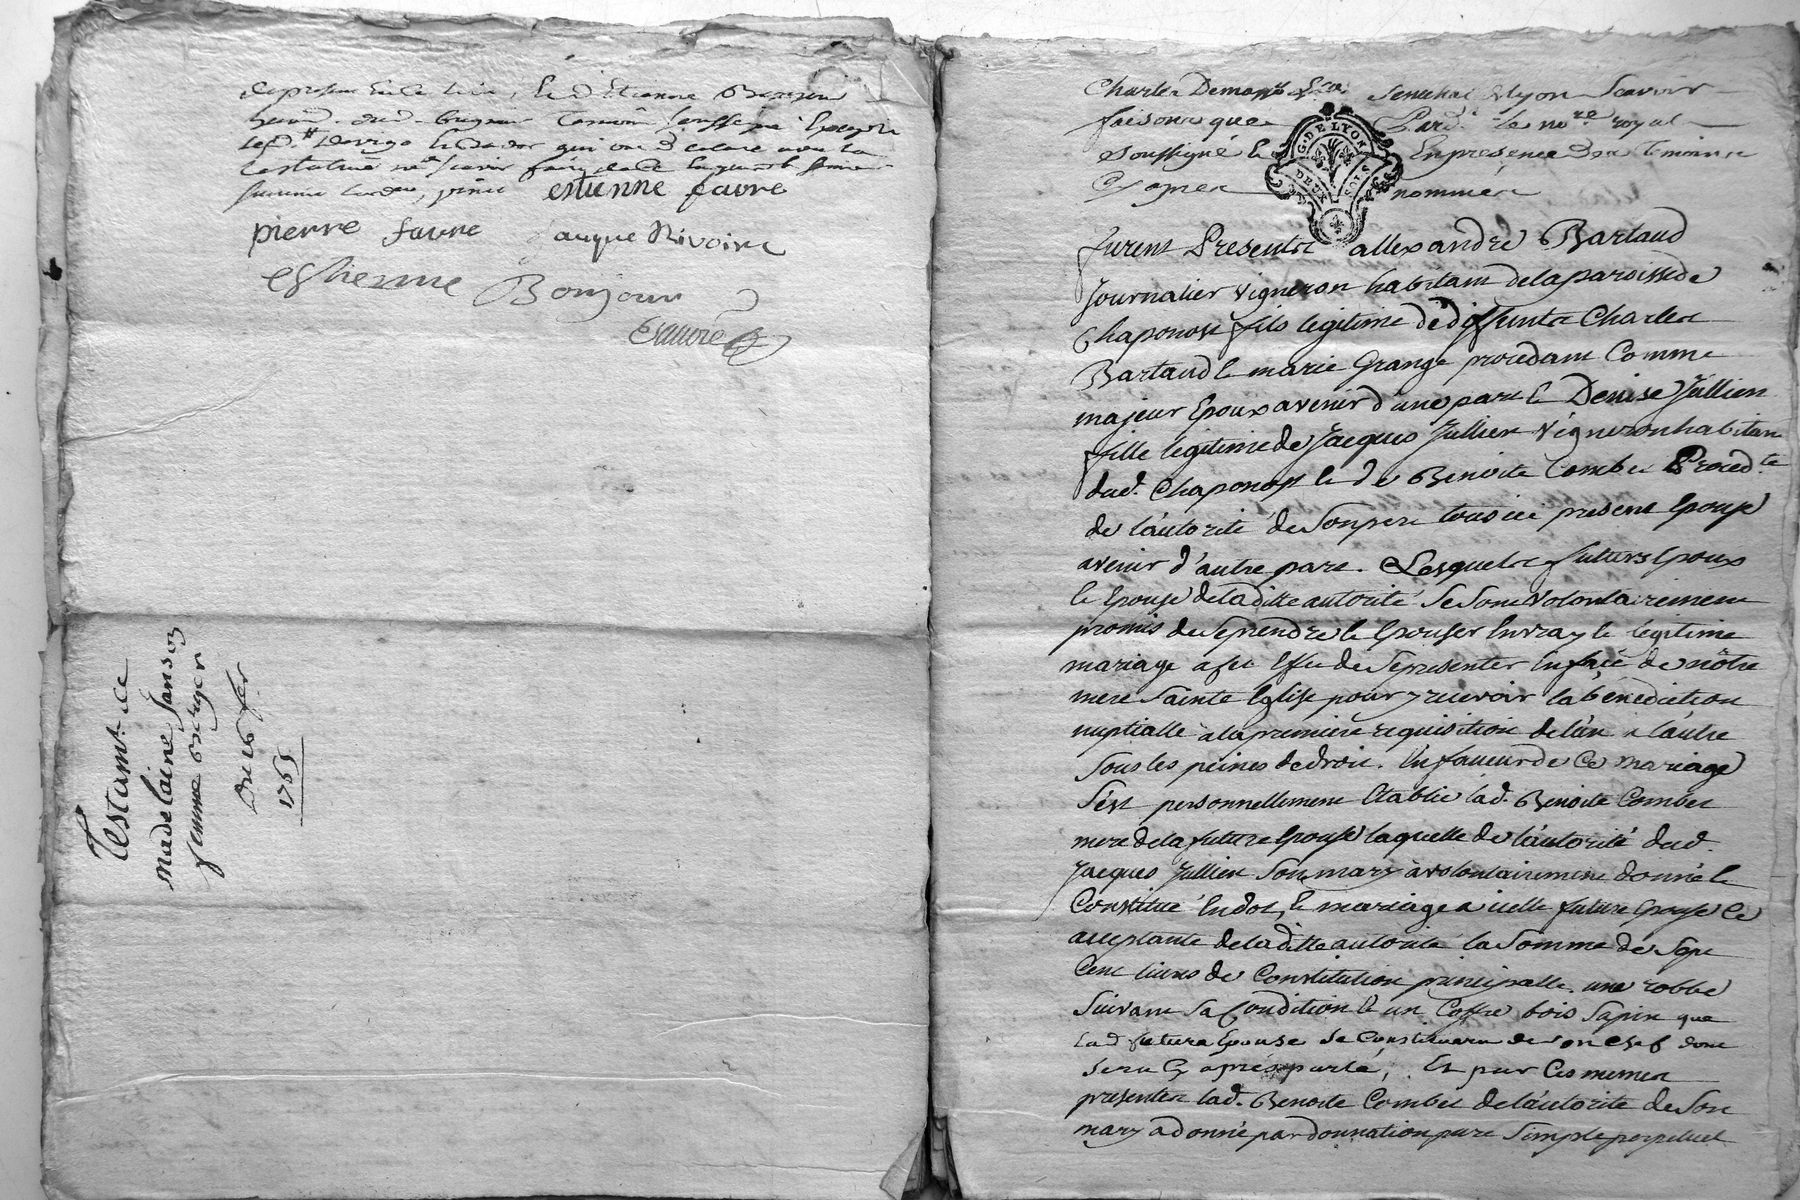 estienne favre
pierre favre jaque Rivoire
esthienne Bonjour
Testamt. de
Madelaine Janson
femme Bergeon
Du 16 fer.
1765
Charles Demasso Senechal de Lyon Scavoir
faisons que Pard. le nore. royal
soussigné & En presence des temoins
G. DE LYON
DEUX SOLS
Cy apres nommés
furent Presents allexandre Bartaud
Journalier Vigneron habitant de la paroisse de
Chaponost fils legitime de deffunts Charles
Bartaud & marie Grange procedant Comme
majeur Epoux avenir d'une part & Denise Jullien
fille legitime de Jacques Jullien Vigneron habitant
dud. Chaponost & de Benoite Combet Proced.te
de l'autorité de Son pere tous ice present Epouse
avenir d'autre part. Lesquels futurs Epoux
& Epouse de laditte autorité Se Sont Volontairement
promis de Se prendre & Epouser En vray & legitime
mariage a fet Effet de Se presenter En face de nôtre
mere Sainte Eglise pour y recevoir la bénediction
nuptialle à la premiere requisition de l'un à l'autre
Sous les peines de droit. En faveur de Ce mariage
S'est personnellement Etablie lad. Benoite Combet
mere de la future Epouse laquelle de l'autorité dud.
Jacques Jullien Son mary à volontairement donné &
Constitué En dot, & mariage a icelle future Epouse Ce
acceptante de laditte autorité la Somme de Sept
Cent livres de Constitution principalle, une robbe
Suivant Sa Condition & un Coffre bois Sapin que
lad future Epouse Se Constituera de Son Chef dont
Sera Cy après parlé, Et par Ces memes
presentes lad. Benoite Combet de l'autorité de Son
mary a donné par donnation pure Simple perpetuel